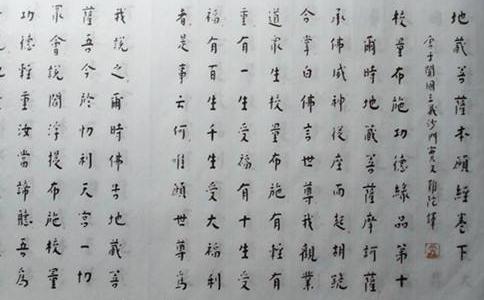 地藏菩薩本願經卷下
唐于闐國三藏沙門實叉難陀譯
校量布施功德緣品第十
爾時地藏菩薩摩訶薩
承佛威神從座而起胡跪
合掌白佛言世尊我觀業
道眾生校量布施有輕有
重有一生受福有十生受
福有百生千生受大福利
者是事云何唯願世尊為
我說之爾時佛告地藏菩
薩吾今於忉利天宮一切
眾會說閻浮提布施校量
功德輕重汝當諦聽吾為